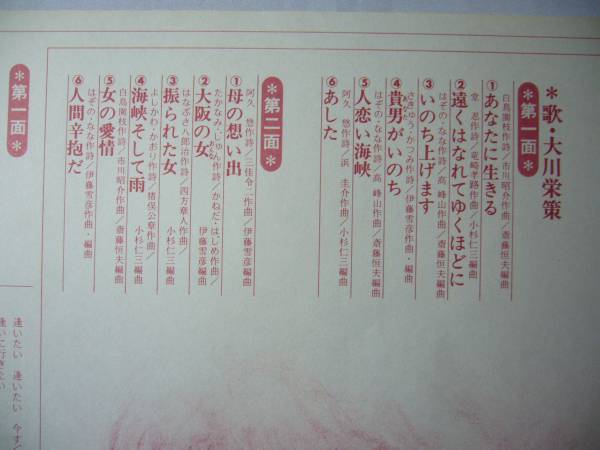 ＊歌・大川栄策
＊第一面＊
①あなたに生きる
白鳥園枝作詩／市川昭介作曲／斎藤恒夫編曲
②遠くはなれてゆくほどに
堂　忍作詩／竜崎孝路作曲／小杉仁三編曲
③いのち上げます
はぞの・なな作詩／高　峰山作曲／斎藤恒夫編曲
④貴男がいのち
さきゆう・かつみ作詩／伊藤雪彦作曲・編曲
⑤人恋い海峡
はぞの・なな作詩／高　峰山作曲／斎藤恒夫編曲
⑥あした
阿久　悠作詩／浜　圭介作曲／小杉仁三編曲
＊第二面＊
①母の想い出
阿久　悠作詩／三佳令二作曲／伊藤雪彦編曲
②大阪の女
たかなみ・じゅん作詩／かねだ・はじめ作曲／伊藤雪彦編曲
③振られた女
はなぶさ・八郎治作詩／四方章人作曲／小杉仁三編曲
④海峡そして雨
よしかわ・かおり作詩／猪俣公章作曲／小杉仁三編曲
⑤女の愛情
白鳥園枝作詩／市川昭介作曲／斎藤恒夫編曲
⑥人間辛抱だ
はぞの・なな作詩／伊藤雪彦作曲・編曲
＊第一面＊
逢いたい　逢いたい　今すぐ
逢いに行きたい